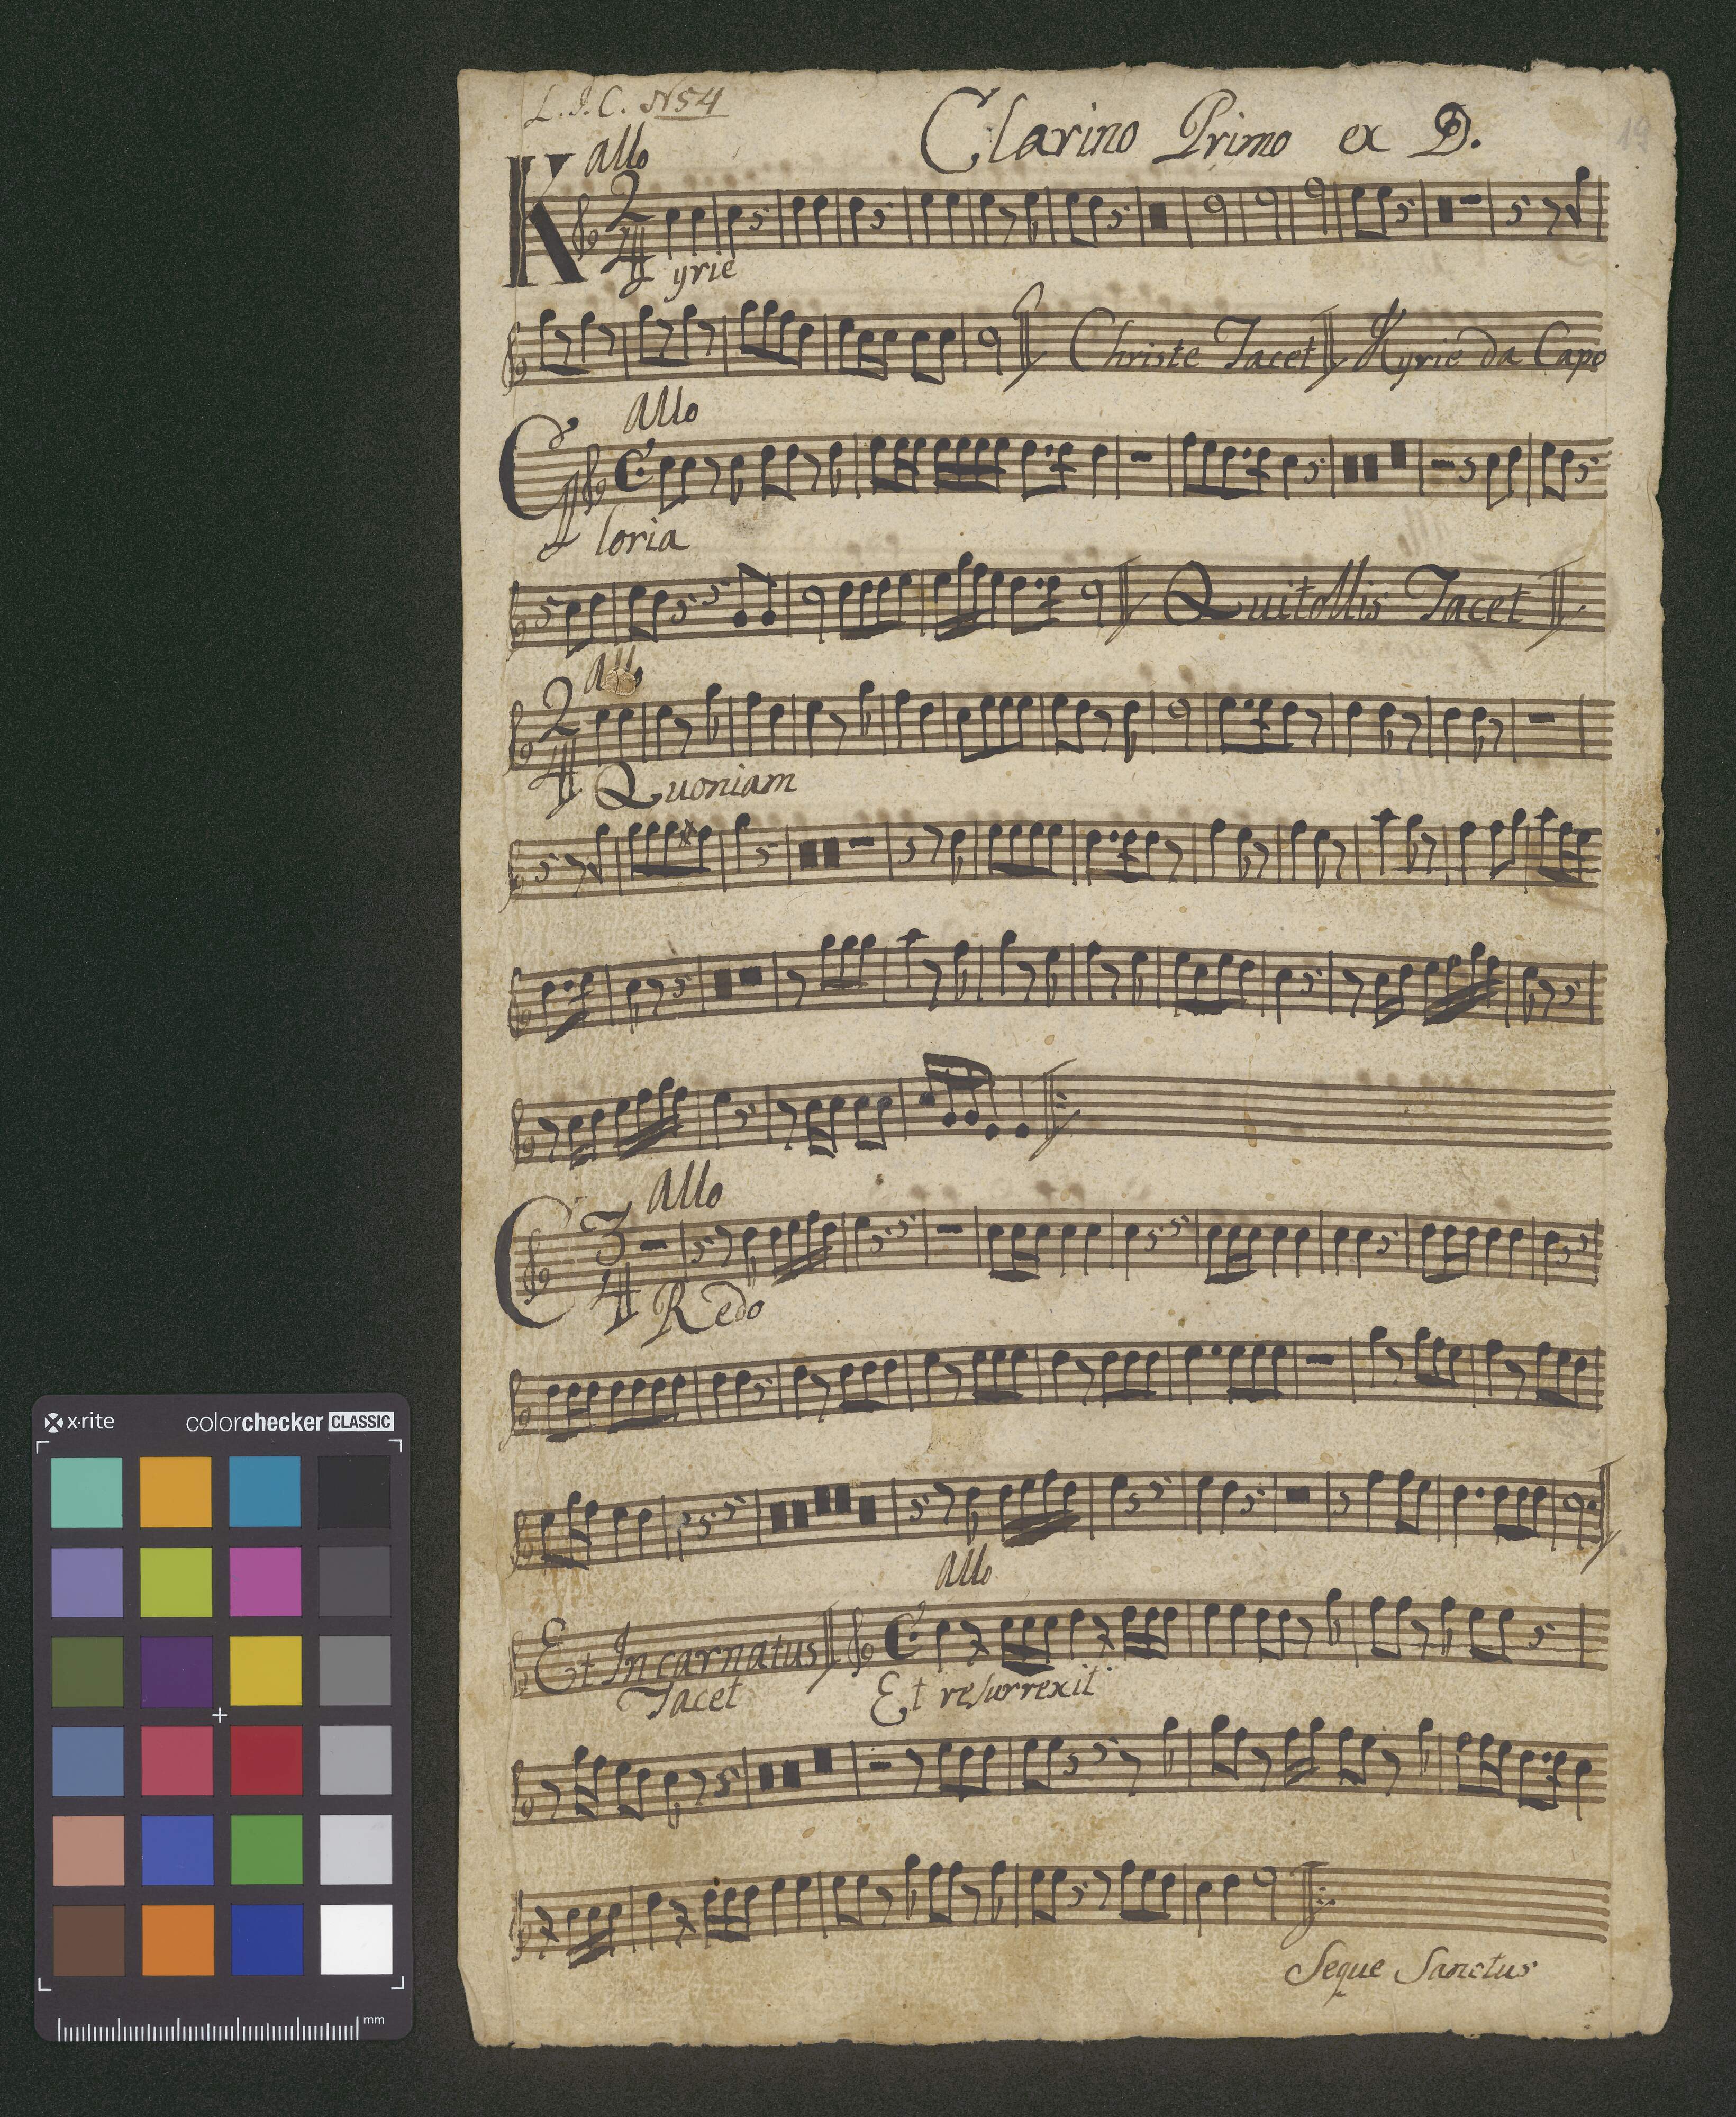 L. I. C. N 54
Clarino Primo ex D.
allo
2/4
Kyrie
Christe Tacet Kyrie da Capo
allo
Gloria
Quitollis Tacet
allo
2/4
Quoniam
allo
3/4
CRedo
allo
Et Incarnatus
Tacet
Et resurrexit
Seque Sanctus
x·rite colorchecker CLASSIC
mm